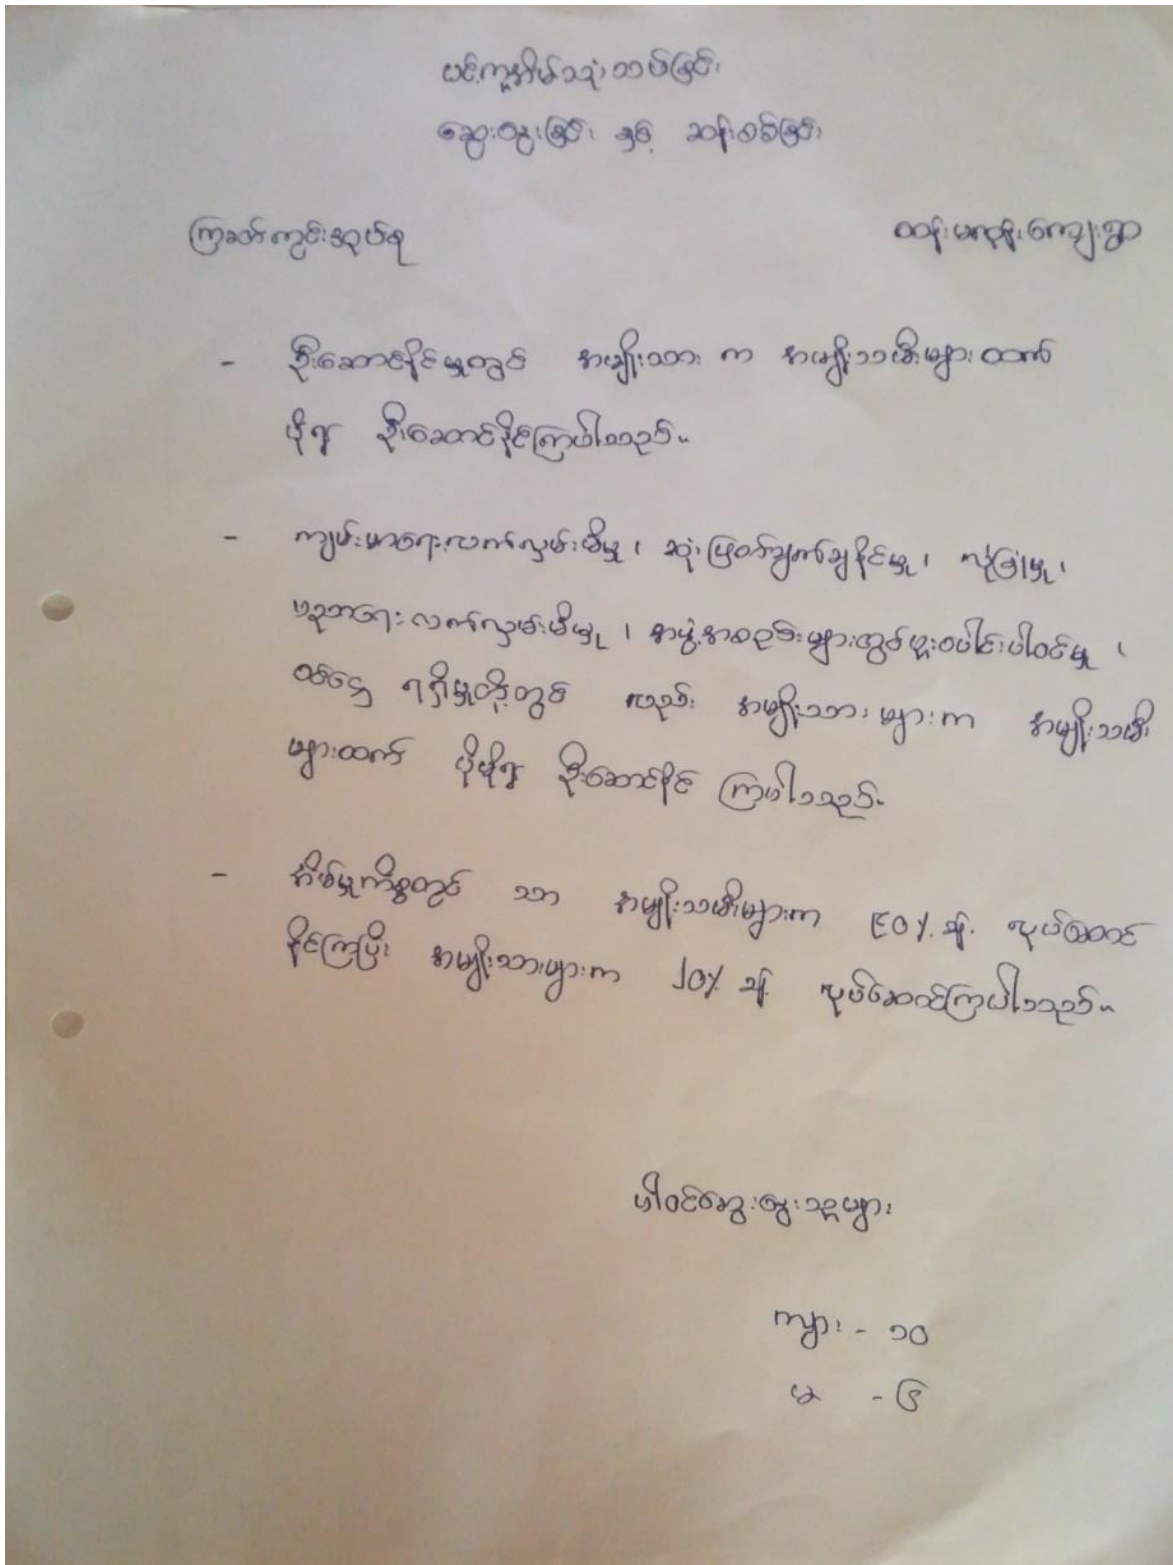 ပင့်ကူအိမ်သုံးသပ်ခြင်း
ဆွေးနွေးခြင်း နှင့် ဆန်းစစ်ခြင်း
ကြခတ်ကွင်းအုပ်စု ထန်းမကုန်းကျေးရွာ
- ဦးဆောင်နိုင်မှုတွင် အမျိုးသား က အမျိုးသမီးများ ထက်
ပို၍ ဦးဆောင်နိုင်ကြပါသည်။
- ကျမ်းမာရေးလက်လှမ်းမီမှု ၊ ဆုံးဖြတ်ချက်ချနိုင်မှု ၊ လုံခြုံမှု ၊
ပညာရေးလက်လှမ်းမီမှု ၊ အဖွဲ့အစည်းများတွင်ပူးပေါင်းပါဝင်မှု ၊
ဝင်ငွေ ရရှိမှုတို့တွင် လည်း အမျိုးသား များက အမျိုးသမီး
များထက် ပိုမို၍ ဦးဆောင်နိုင် ကြပါသည်။
- အိမ်မှုကိစ္စတွင် သာ အမျိုးသမီးများက ၉၀% ခန့် လုပ်ဆောင်
နိုင်ကြပြီး အမျိုးသားများက ၂၀% ခန့် လုပ်ဆောင်ကြပါသည်။
ပါဝင်ဆွေးနွေးသူများ
ကျား - ၁၀
မ - ၆